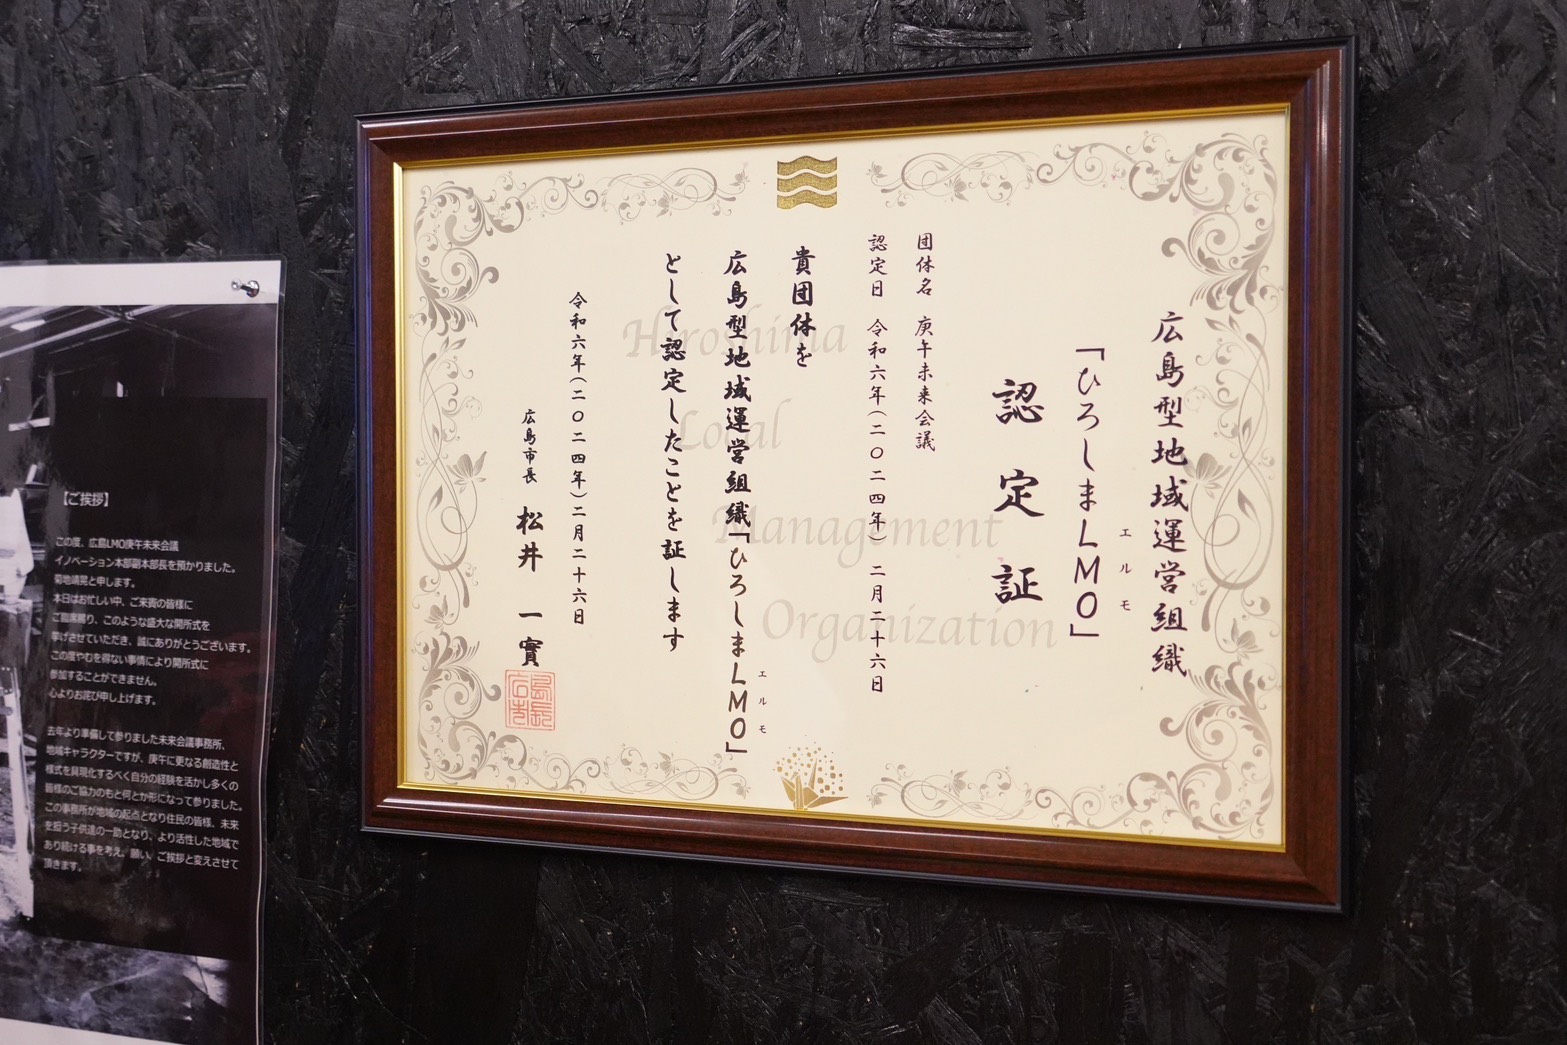 広島型地域運営組織
「ひろしまLMO」
エルモ
認定証
団体名 庚午未来会議
認定日 令和六年(二〇二四年)二月二十六日
貴団体を
広島型地域運営組織「ひろしまLMO」
エルモ
として認定したことを証します
令和六年(二〇二四年)二月二十六日
広島市長 松井 一實
Hiroshima
Local
Management
Organization
【ご挨拶】
この度、広島LMO庚午未来会議
イノベーション本部副本部長を預かりました。
菊地靖晃と申します。
本日はお忙しい中、ご来賓の皆様に
ご臨席賜り、このような盛大な開所式を
挙げさせていただき、誠にありがとうございます。
この度やむを得ない事情により開所式に
参加することができません。
心よりお詫び申し上げます。
去年より準備して参りました未来会議事務所、
地域キャラクターですが、庚午に更なる創造性と
様式を具現化するべく自分の経験を活かし多くの
皆様のご協力のもと何とか形になって参りました。
この事務所が地域の起点となり住民の皆様、未来
を担う子供達の一助となり、より活性した地域で
あり続ける事を考え、願い、ご挨拶と変えさせて
頂きます。